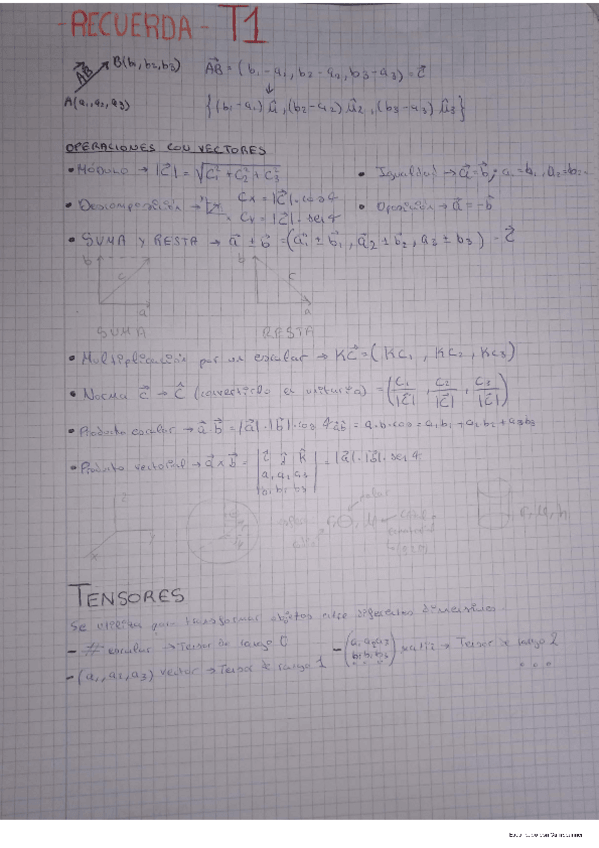 -RECUERDA- T1
AB B(b₁,b₂,b₃) AB⃗ = (b₁-a₁, b₂-a₂, b₃-a₃) = c⃗
A(a₁,a₂,a₃) {(b₁-a₁) û₁, (b₂-a₂) û₂, (b₃-a₃) û₃}
OPERACIONES CON VECTORES
• Módulo → |c⃗| = √c₁² + c₂² + c₃² • Igualdad → a⃗ = b⃗; a₁=b₁, a₂=b₂
• Descomposición → Cx = |c⃗|·cos • Oposición → a⃗ = -b⃗
Cy = |c⃗|·sen
• SUMA Y RESTA → a⃗ ± b⃗ = (a₁ ± b₁, a₂ ± b₂, a₃ ± b₃) = c⃗
b c a b c a
SUMA RESTA
• Multiplicación por un escalar → Kc⃗ = (Kc₁, Kc₂, Kc₃)
• Norma c⃗ → ĉ (convertirlo a unitario) = (c₁/|c⃗|, c₂/|c⃗|, c₃/|c⃗|)
• Producto escalar → a⃗ b⃗ = |a⃗|·|b⃗|·cos = a·b·cos = a₁b₁ + a₂b₂ + a₃b₃
• Producto vectorial → a⃗ × b⃗ = |i j k| = |a⃗|·|b⃗|·sen
a₁ a₂ a₃
b₁ b₂ b₃
TENSORES
Se utiliza para transformar objetos entre diferentes dimensiones.
- nº escalar → Tensor de rango 0 - (a₁ a₂ a₃ b₁ b₂ b₃) matriz → Tensor de rango 2
- (a₁, a₂, a₃) vector → Tensor de rango 1 ...